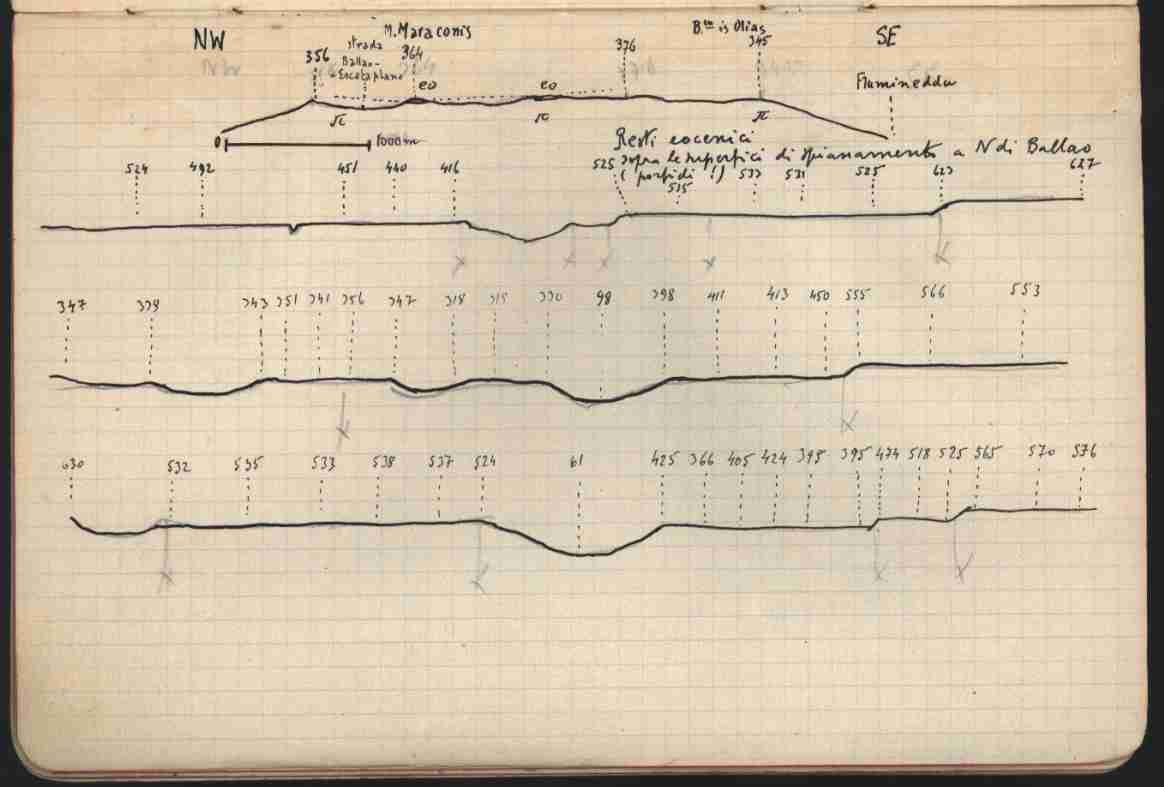 NW M. Maraconis B.cu is Olias SE
356 strada 364 376 345
Ballao- Flumineddu
Escalaplano
eo eo
π π π
0 1000 m
Resti eocenici
sopra le superfici di spianamento a N di Ballao
(porfidi !)
524 492 451 440 416 525 515 533 531 525 623 627
347 339 343 351 341 356 347 318 315 330 98 398 411 413 450 555 566 553
630 532 535 533 538 537 524 61 425 366 405 424 398 395 474 518 525 565 570 576